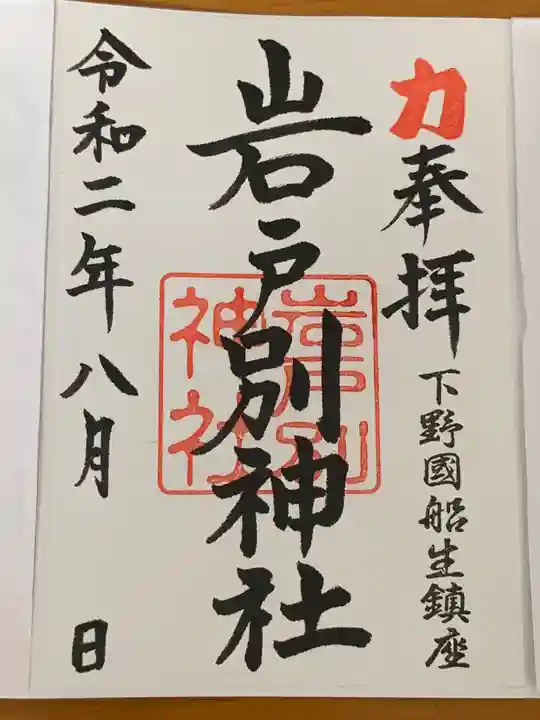 力
奉拝
下野國船生鎮座
岩戸別神社
岩戸別
神社
令和二年八月 日